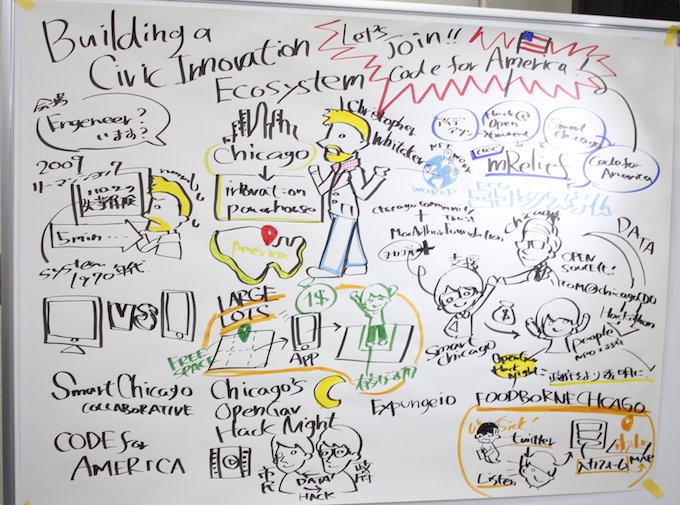 Building a
Civic Innovation
Ecosystem
Let's
Join!!
Code for America
会場
Engeneer?
います?
2009
リーマンショック
5min....
System
1970年代
Chicago
innovation
powerhouse
America
Christopher
Whitaker
Hack@
Open
Smart
Chicago
Code for
America
mRelief
ECO
Chicago Community
+ Trust
MacArthur Foundation
支援
Smart
Chicago
Chicago
DATA
OPEN
Source!
Hackathon
people
VS
LARGE
LOTS
1$
FREE
SPACE
APP
Smart Chicago
COLLABORATIVE
CODE for
AMERICA
Chicago's
OpenGov
Hack Night
市民
DATA
HACK
政府
Expungeio
OpenGov
Hack
Night
FOODBORNE CHICAGO
Sick!
twitter
Listen
入力フォーム
MAP